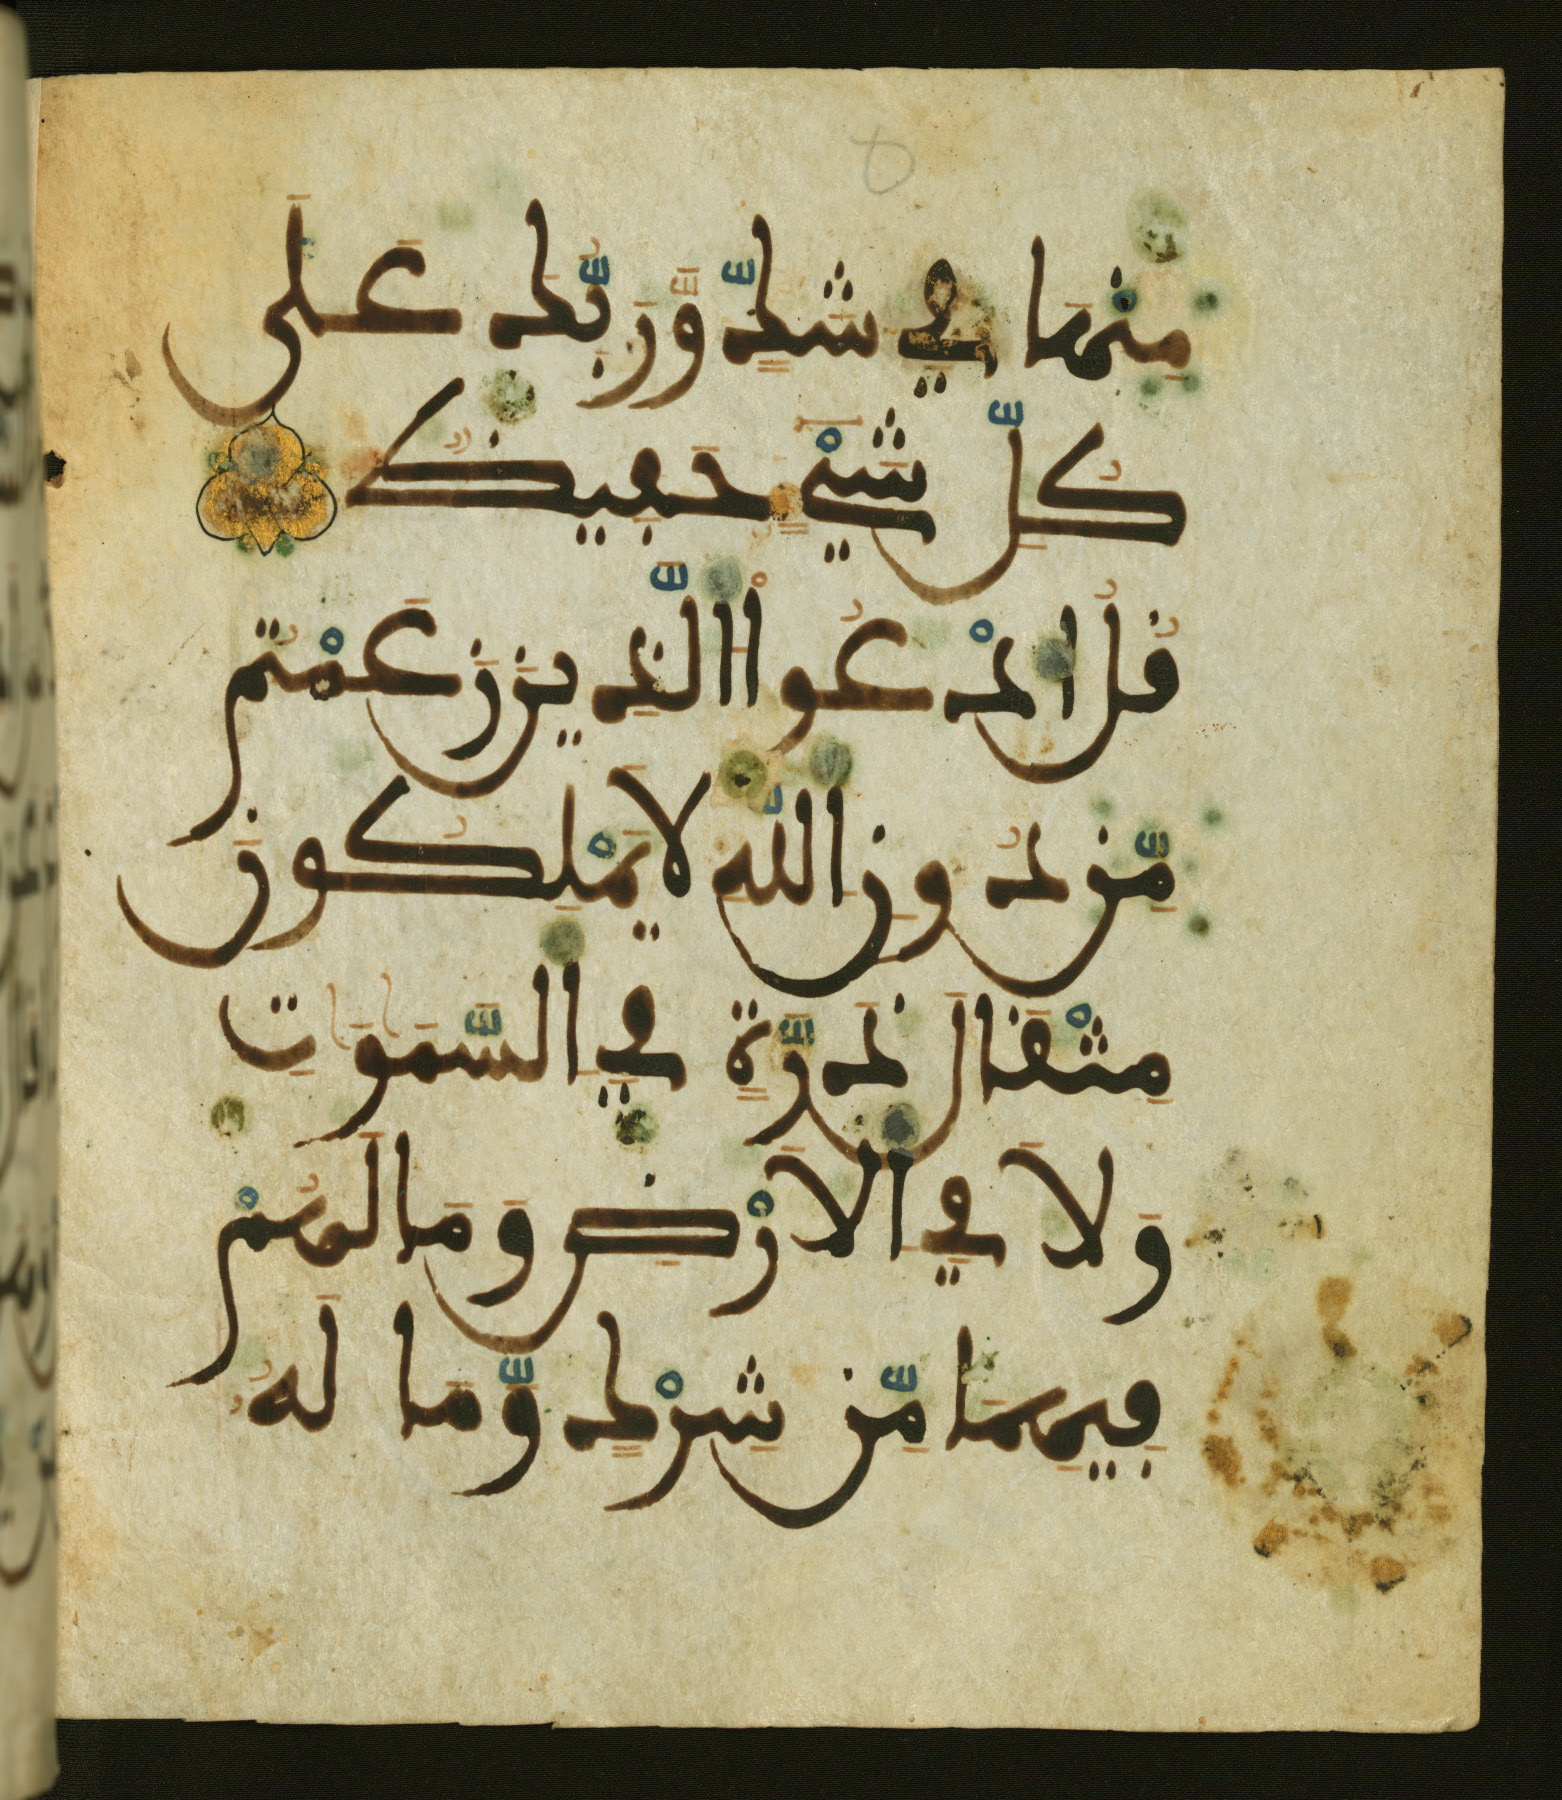 مِنْهَا فِي شَكٍّ وَّرَبُّكَ عَلَى
كُلِّ شَيْءٍ حَفِيظٌ
قُلُ ادْعُوا الَّذِينَ زَعَمْتُم
مِّن دُونِ اللَّهِ لَا يَمْلِكُونَ
مِثْقَالَ ذَرَّةٍ فِي السَّمَوَتِ
وَلَا فِي الَارْضِ وَمَا لَهُمْ
فِيهِمَا مِن شِرْكٍ وَّمَا لَهُ